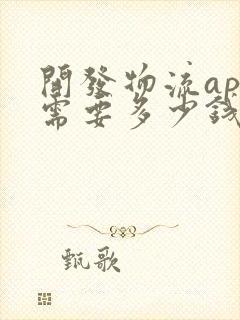 開發物流ap
需要多少錢
甄歌